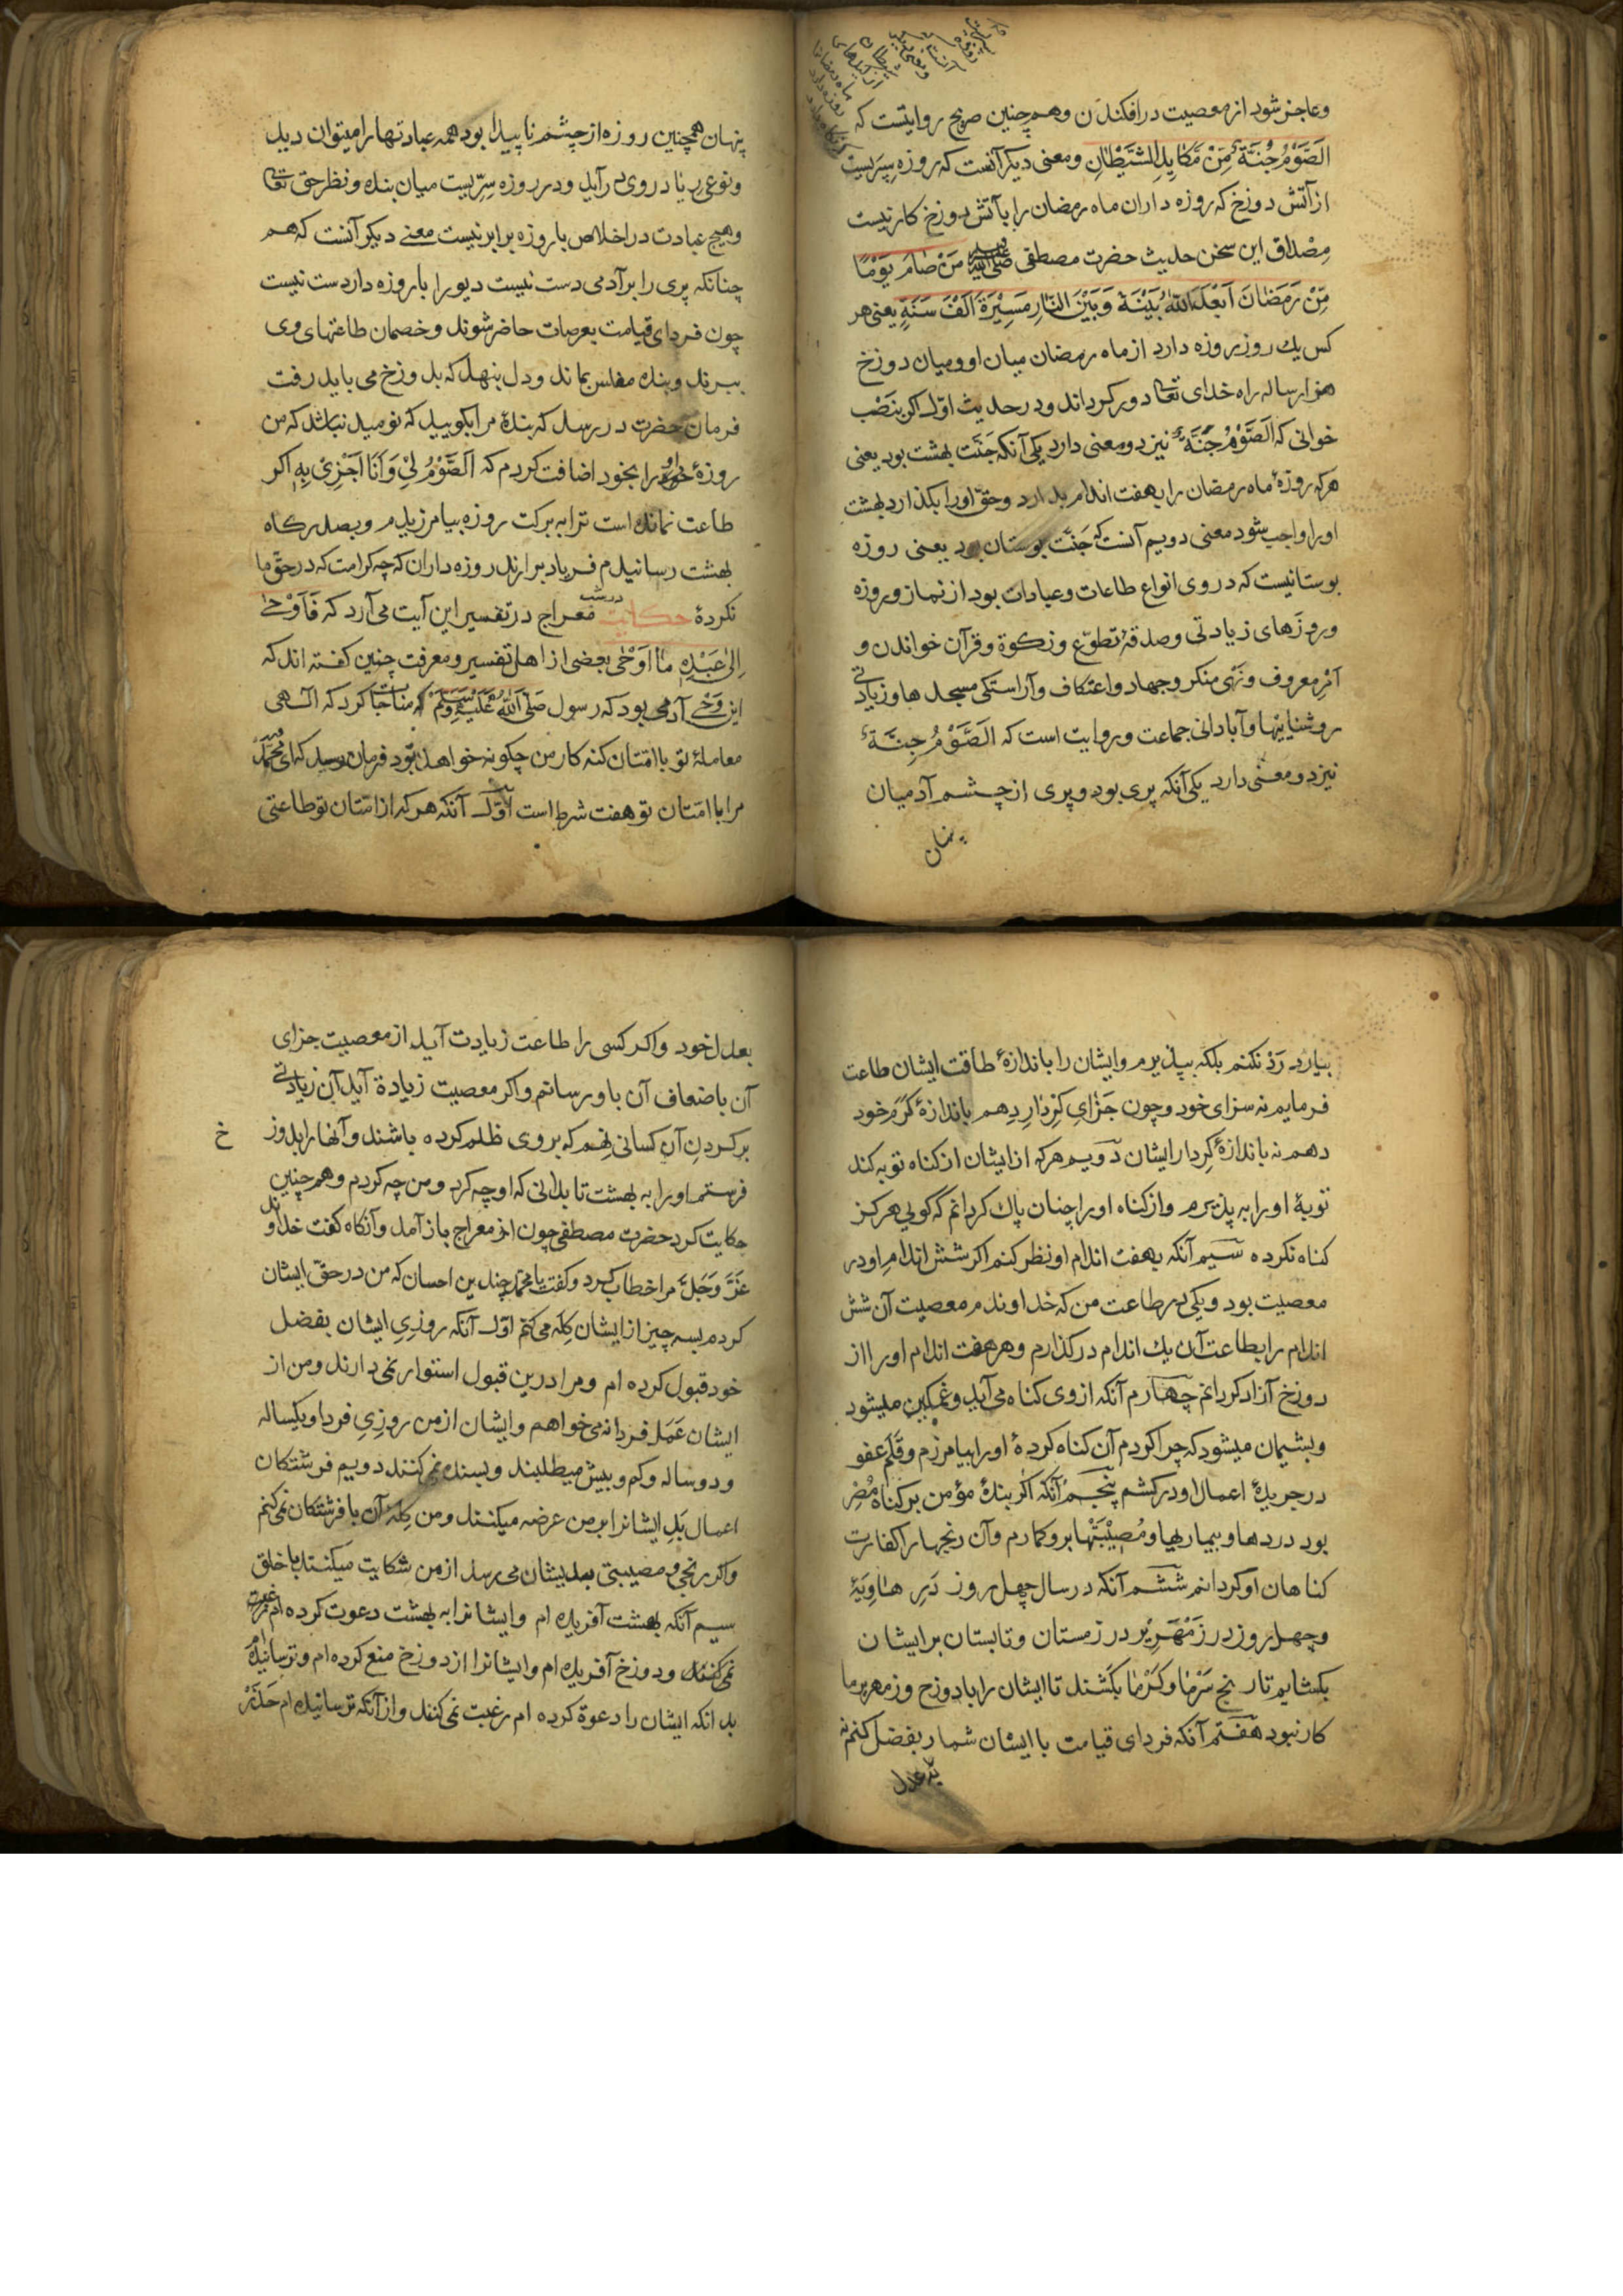 وعاجز شود از معصیت در افکندن وهم چنین صریح روایتست که
اَلصَّوْمُ جُنَّةٌ مِنْ مَکَایِدِ الشَّیْطَانِ ومعنی دیکر آنست که روزه سپریست
از آتش دوزخ که روزه داران ماه رمضان را با آتش دوزخ کار نیست
مِصْدَاق این سخن حدیث حضرت مصطفی صلی الله علیه مَنْ صَامَ یَوْمًا
مِنْ رَمَضَانَ اَبْعَدَ اللّٰهُ بَیْنَهُ وَبَیْنَ النَّارِ مَسِیْرَةَ اَلْفَ سَنَةٍ یعنی هر
کس یك روز روزه دارد از ماه رمضان میان او ومیان دوزخ
هزار ساله راه خدای تعا دور کرداند ودر حدیث اوّل اکر بنَصْب
خوانی که اَلصَّوْمُ جَنَّةٌ نیز دو معنی دارد یکی آنکه جَنَّت بهشت بود یعنی
هرکه روزهٔ ماه رمضان را بهفت اندام بدارد وحقّ اورا بکذارد بهشت
اورا واجب شود معنی دویم آنست که جَنَّت بوستان بود یعنی روزه
بوستانیست که در وی انواع طاعات وعبادات بود از نماز وروزه
وروزَهای زیادتی وصدقهٔ تطوّع وزکوة وقرآن خواندن و
اَمْرِ معروف ونَهْی منکر وجهاد واعتکاف وآراستکی مسجدها وزیادتی
روشناییها وآبادانی جماعت وروایت است که اَلصَّوْمُ جِنَّةٌ
نیز دو معنی دارد یکی آنکه پری بود وپری از چشم آدمیان
پنهان
پنهان همچنین روزه از چشم ناپیدا بود همه عبادتها را میتوان دید
ونوعی ریا در وی در آید ودر روزه سِرّیست میان بنده ونظر حق تعا
وهیچ عبادت در اخلاص با روزه برابر نیست معنی دیکر آنست که هم
چنانکه پری را بر آدمی دست نیست دیو را با روزه دار دست نیست
چون فردای قیامت بعرصات حاضر شوند وخصمان طاعتهای وی
ببرند وبنده مفلس بماند ودل بنهد که بدوزخ می باید رفت
فرمان حضرت در رسد که بندهٔ مرا بکویید که نومید نباشد که من
روزهٔ او را بخود اضافت کردم که اَلصَّوْمُ لِیْ وَاَنَا اَجْزِیْ بِهِ اکر
طاعت نمانده است ترا به برکت روزه بیامرزیدم وبصد رکاه
بهشت رسانیدم فریاد برارند روزه داران که چه کرامت که در حقّ ما
نکردهٔ حکایت در شب معراج در تفسیر این آیت می آرد که فَاَوْحٰی
اِلٰی عَبْدِهِ مَا اَوْحٰی بعضی از اهل تفسیر ومعرفت چنین کفته اند که
این وَحْی آدمی بود که رسول صَلَّی اللّٰهُ عَلَیْهِ وَسَلَّمَ که مناجات کرد که الهی
معاملهٔ تو با امّتان کنه کار من چکونه خواهد بود فرمان رسید که ای محمّد
مرا با امّتان تو هفت شرط است اوّل آنکه هر که از امّتان تو طاعتی
بیارد رَدْ نکنم بلکه بپذیرم وایشان را باندازهٔ طاقت ایشان طاعت
فرمایم نه سزای خود وچون جَزَایِ کِرْدارِ دِهم باندازهٔ کَرَم خود
دهم نه باندازهٔ کِردار ایشان دویم هرکه از ایشان از کناه توبه کند
توبهٔ اورا به پذیرم واز کناه اورا چنان پاك کردانم که کویی هرکز
کناه نکرده سیم آنکه بهفت اندام او نظر کنم اکر شش اندامِ او در
معصیت بود ویکی در طاعت من که خداوندم معصیت آن شش
اندام را بطاعت آن یك اندام در کذارم وهر هفت اندام اورا از
دوزخ آزاد کردانم چهارم آنکه از وی کناه می آید وغمکین میشود
وپشیمان میشود که چرا کردم آن کناه کردهٔ اورا بیامرزم وقَلَم عفو
در جریدهٔ اعمال او در کشم پنجم آنکه اکر بندهٔ مؤمن بر کناه مُصِرْ
بود دردها وبیماریها ومُصِیْبَتْها برو کمارم وآن رنجها را کفارت
کناهان او کردانم ششم آنکه در سال چهل روز دَرِ هَاوِیَهٔ
وچهل روز در زَمْهَرِیْر در زمستان وتابستان بر ایشان
بکشایم تا رنج سَرْمَا وکَرْمَا بکَشند تا ایشان را با دوزخ وزمهریر ما
کار نبود هفتم آنکه فردای قیامت با ایشان شمار بفضل کنم نه
بعدل
بعدل خود واکر کسی را طاعت زیادت آید از معصیت جزای
آن باضعاف آن باو رسانم واکر معصیت زیادة آید آن زیادتی
بر کردنِ آن کسانی نِهم که بر وی ظلم کرده باشند وآنها را بدوزخ
فرستم اورا به بهشت تا بدانی که او چه کرد ومن چه کردم وهم چنین
حکایت کرد حضرت مصطفی چون از معراج باز آمد وآنکاه کفت خداوند
عَزَّ وَجَلَّ مرا خطاب کرد وکفت یا محمّد چندین احسان که من در حقّ ایشان
کردم بسه چیز از ایشان کِلَه می کنم اوّل آنکه روزیِ ایشان بفضل
خود قبول کرده ام ومرا درین قبول استوار نمی دارند ومن از
ایشان عَمَلِ فردا نمی خواهم وایشان از من روزیِ فردا ویکساله
ودوساله وکم وبیش میطلبند وبسنده نمی کنند دویم فرشتکان
اعمال بَدِ ایشانرا بر من عرضه میکنند ومن کِلهٔ آن با فرشتکان نمی کنم
واکر رنجی ومصیبتی بدیشان می رسد از من شکایت میکنند با خلق
سیم آنکه بهشت آفریده ام وایشانرا به بهشت دعوت کرده ام رغبت
نمی کنند ودوزخ آفریده ام وایشانرا از دوزخ منع کرده ام وترسانیده ام
بدانکه ایشان را دعوة کرده ام رغبت نمی کنند واز آنکه ترسانیده ام حَذَرْ